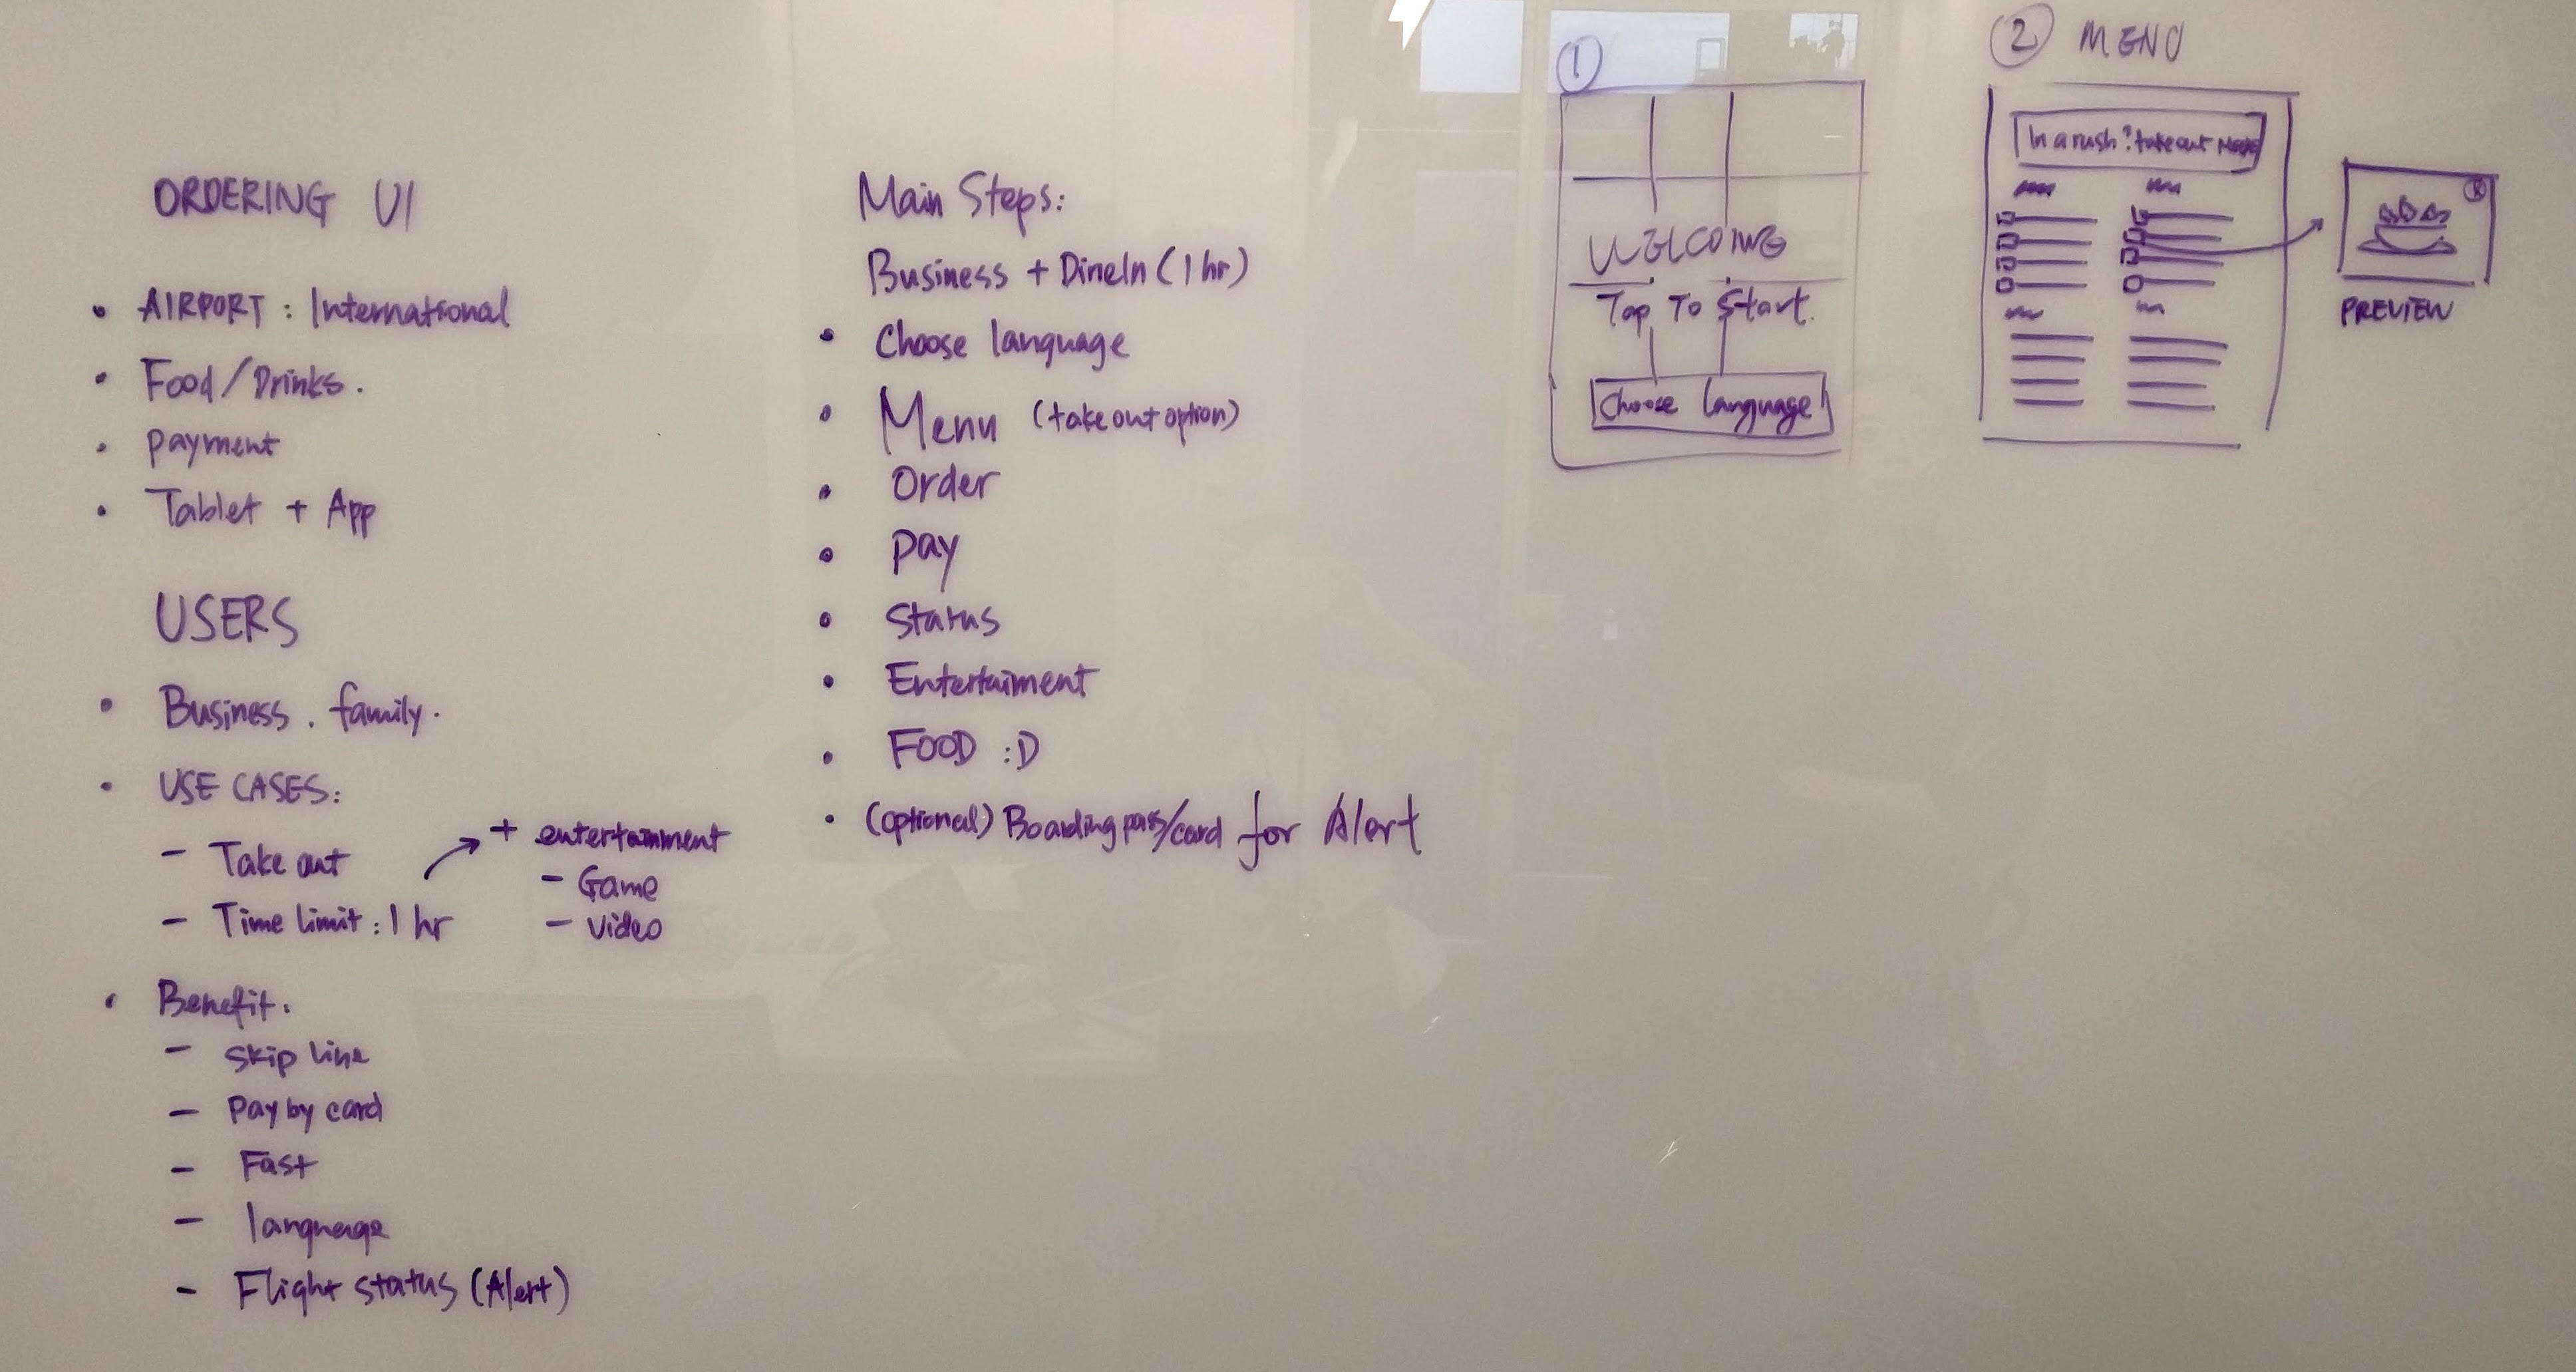 ORDERING UI
• AIRPORT : International
• Food/Drinks.
• payment
• Tablet + App
USERS
• Business . family.
• USE CASES:
– Take out
– Time limit : 1 hr
+ entertainment
– Game
– video
• Benefit.
– skip line
– pay by card
– Fast
– language
– Flight status (Alert)
Main Steps:
Business + DineIn (1 hr)
• Choose language
• Menu (take out option)
• Order
• pay
• Status
• Entertaiment
• FOOD :D
• (optional) Boarding pass/card for Alert
1
WELCOME
Tap To Start.
Choose language
2 MENU
In a rush? take out
PREVIEW